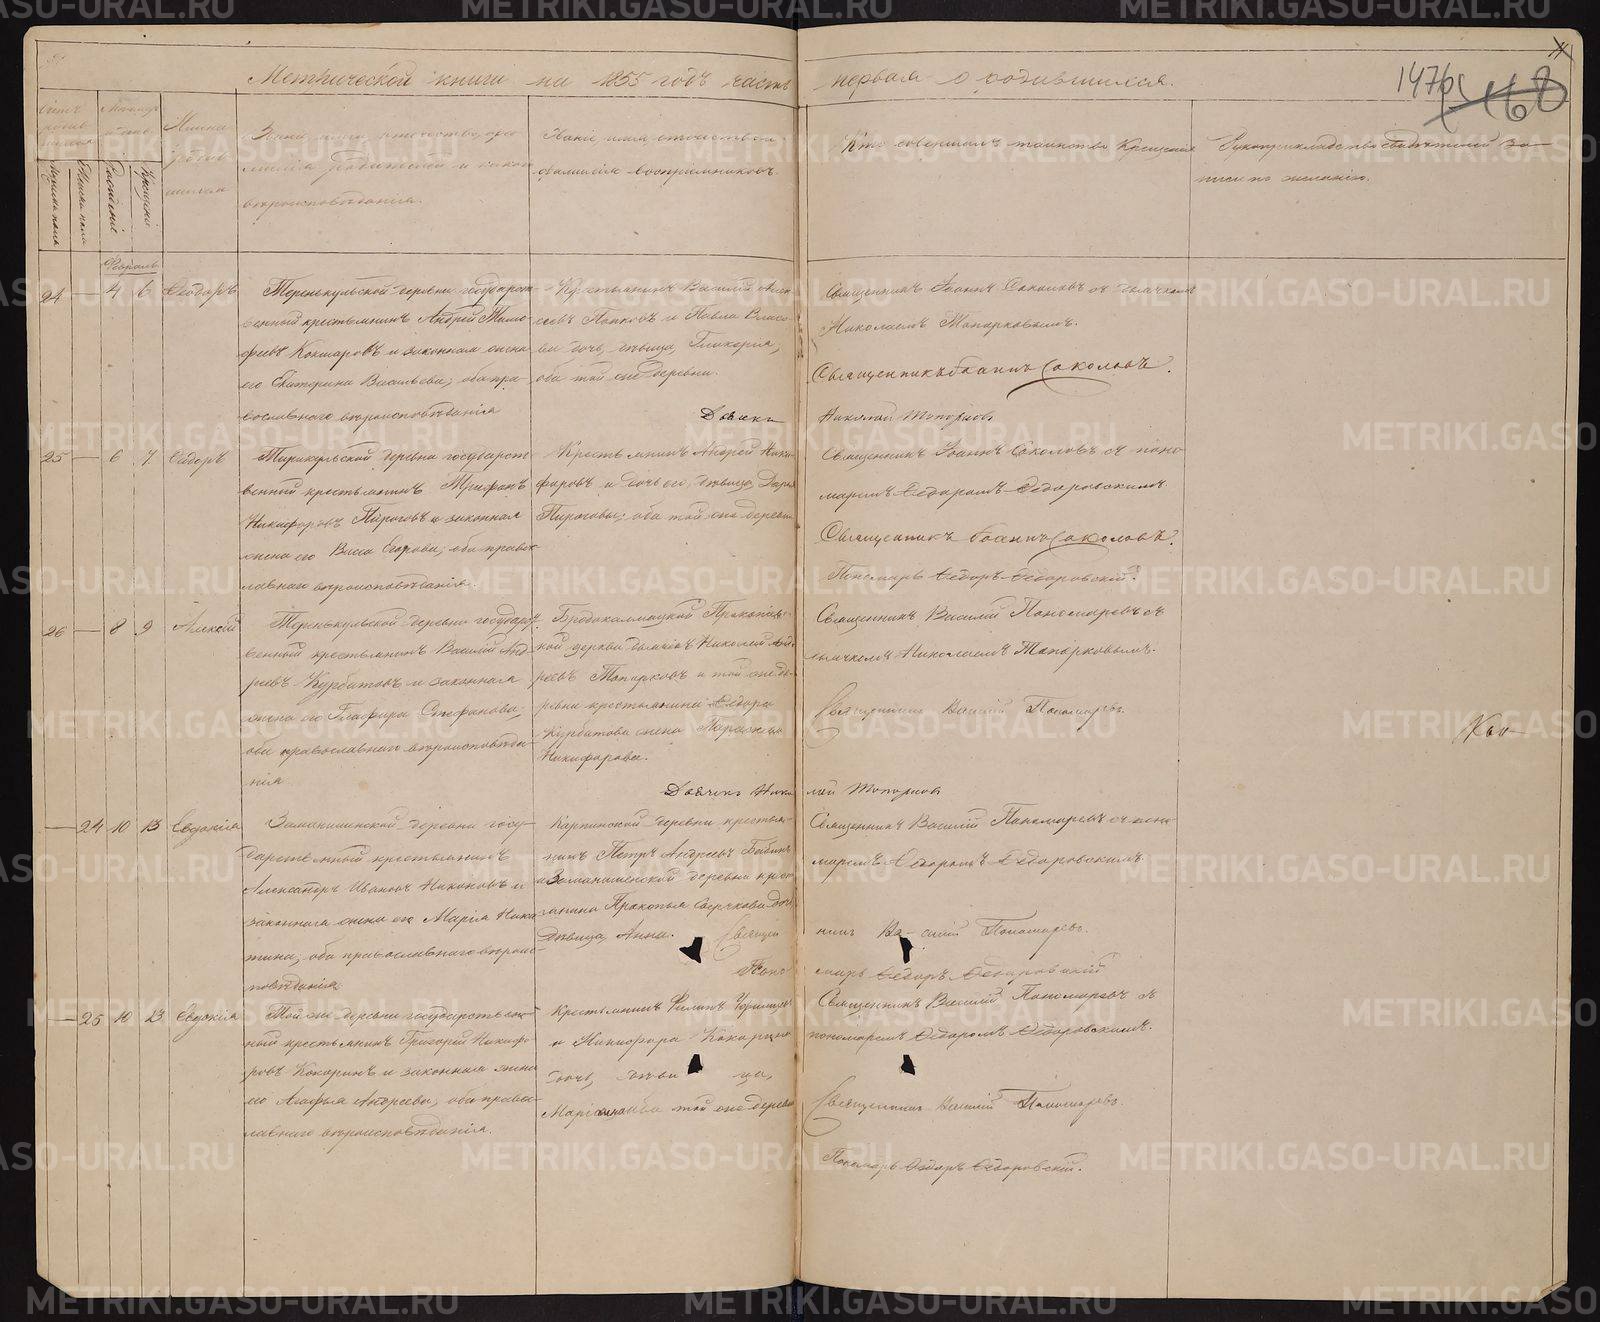 Метрической книги на 1855 годъ часть первая о родившихся.
147об
168
Счетъ родив-
шихся
Мужеска пола
Женска пола
Месяцъ
и день
Рожденія
Крещенія
Имена
родив-
шихся
Званіе, имя, отчество, фа-
милія родителей и какого
вѣроисповѣданія.
Званіе имя отчество и
фамилія воспріемниковъ.
Кто совершалъ таинство Крещенія
Рукоприкладство свидѣтелей за-
писи по желанію.
Февраль
24 — 4 6 Ѳеодоръ
Теренькульской деревни государст-
венный крестьянинъ Андрей Тимо-
феевъ Кокшаровъ и законная жена
его Екатерина Васильева; оба пра-
вославнаго вѣроисповѣданія
Крестьянинъ Василій Алек
сеевъ Попковъ и Павла Власо-
ва дочь, дѣвица, Гликерія,
оба той же деревни.
Священникъ Іоаннъ Соколовъ съ дьячкомъ
Николаемъ Топорковымъ.
Священникъ Іоаннъ Соколовъ.
Дьячекъ Николай Топорковъ
25 — 6 7 Сидоръ
Теренкульской деревни государст
венный крестьянинъ Трифонъ
Никифоровъ Пироговъ и законная
жена его Васса Егорова; оба право
славнаго вѣроисповѣданія.
Крестьянинъ Андрей Ники-
форовъ и дочь его, дѣвица, Дарья
Пироговы; оба той же деревни
Священникъ Іоаннъ Соколовъ съ поно-
маремъ Ѳедоромъ Ѳедоровскимъ.
Священникъ Іоаннъ Соколовъ.
Пономарь Ѳедоръ Ѳедоровскій.
26 — 8 9 Алексій
Теренькульской деревни государст
венный крестьянинъ Василій Анд-
реевъ Курбатовъ и законная
жена его Глафира Стефанова;
оба православнаго вѣроисповѣда-
нія
Бродокалмацкой Прокопіев-
ской церкви дьячекъ Николай Анд-
реевъ Топорковъ и той же де-
ревни крестьянина Ѳедора
Курбатова жена Параскева
Никифорова.
Священникъ Василій Пономаревъ съ
дьячкомъ Николаемъ Топорковымъ.
Священникъ Василій Пономаревъ
Дьячекъ Николай Топорковъ
— 24 10 13 Евдокія
Заманишенской деревни госу
дарственный крестьянинъ
Александръ Ивановъ Никоновъ и
законная жена его Марія Ники
тина; оба православнаго вѣроис-
повѣданія
Карпинской деревни крестья-
нинъ Петръ Андреевъ Бабинъ
и Заманишенской деревни крес
тянина Прокопья Сверчкова дочь
дѣвица, Анна.
Священникъ Василій Пономаревъ съ поно
маремъ Ѳедоромъ Ѳедоровскимъ.
Священникъ Василій Пономаревъ.
Пономарь Ѳедоръ Ѳедоровскій
— 25 10 13 Евдокія
Той же деревни государствен-
ный крестьянинъ Григорій Никифо-
ровъ Кокоринъ и законная жена
его Агафья Андреева; оба право-
славнаго вѣроисповѣданія.
Крестьянинъ Филипъ
и Никифора Кокорина
дочь, дѣвица,
оба той же деревни
Священникъ Василій Пономаревъ съ
пономаремъ Ѳедоромъ Ѳедоровскимъ.
Священникъ Василій Пономаревъ.
Пономарь Ѳедоръ Ѳедоровскій.
METRIKI.GASO-URAL.RU